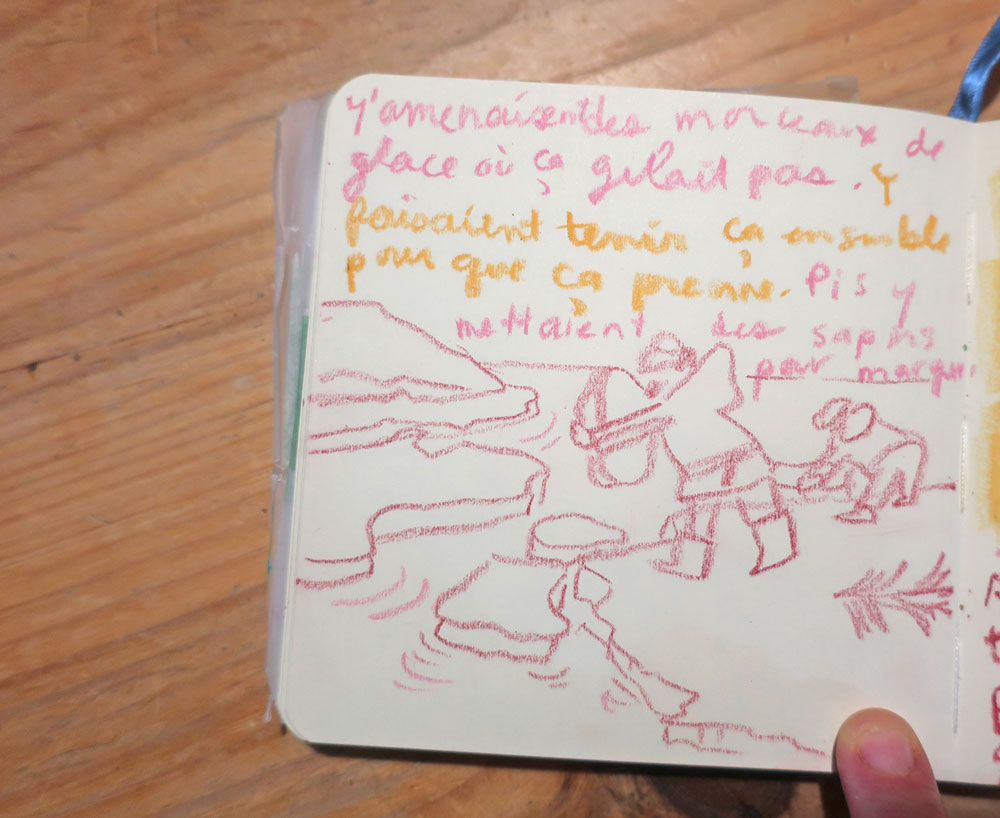 y'amenaient des morceaux de
glace où ça gelait pas. Y
faisaient tenir ça ensemble
pour que ça prenne. Pis y
mettaient des sapins
pour marquer